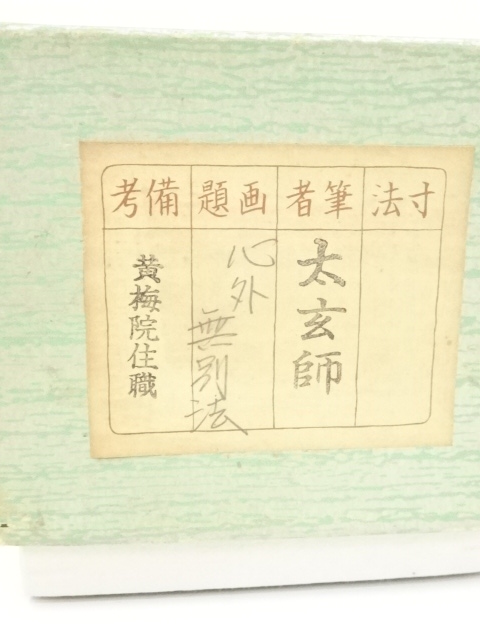 寸法
筆者
太玄師
画題
心外
無別法
備考
黄梅院住職